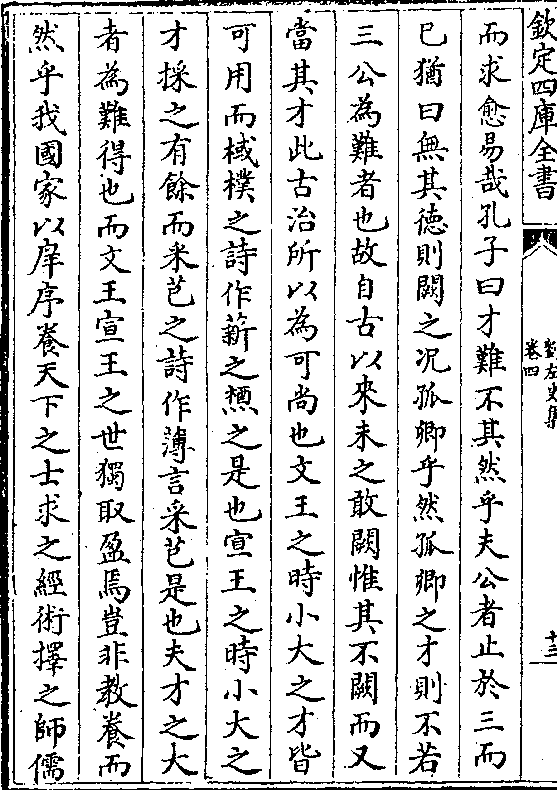 欽定四庫全書
劉左史集
卷四
十三
而求愈易哉孔子曰才難不其然乎夫公者止於三而
已猶曰無其徳則闕之况孤卿乎然孤卿之才則不若
三公為難者也故自古以來未之敢闕惟其不闕而又
當其才此古治所以為可尚也文王之時小大之才皆
可用而棫樸之詩作薪之槱之是也宣王之時小大之
才採之有餘而采芑之詩作薄言采芑是也夫才之大
者為難得也而文王宣王之世獨取盈焉豈非教養而
然乎我國家以庠序養天下之士求之經術擇之師儒